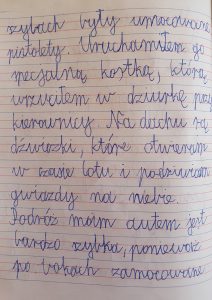 szybach były umocowane
pistolety. Uruchamiłem go
specjalną kostką, którą
wrzucałem w dziurkę przy
kierownicy. Na dachu są
dźwiozki, które otwieram
w czasie lotu i podziwiam
gwiazdy na niebie.
Podróż moim autem jest
bardzo szybka, ponieważ
po bokach zamocowane